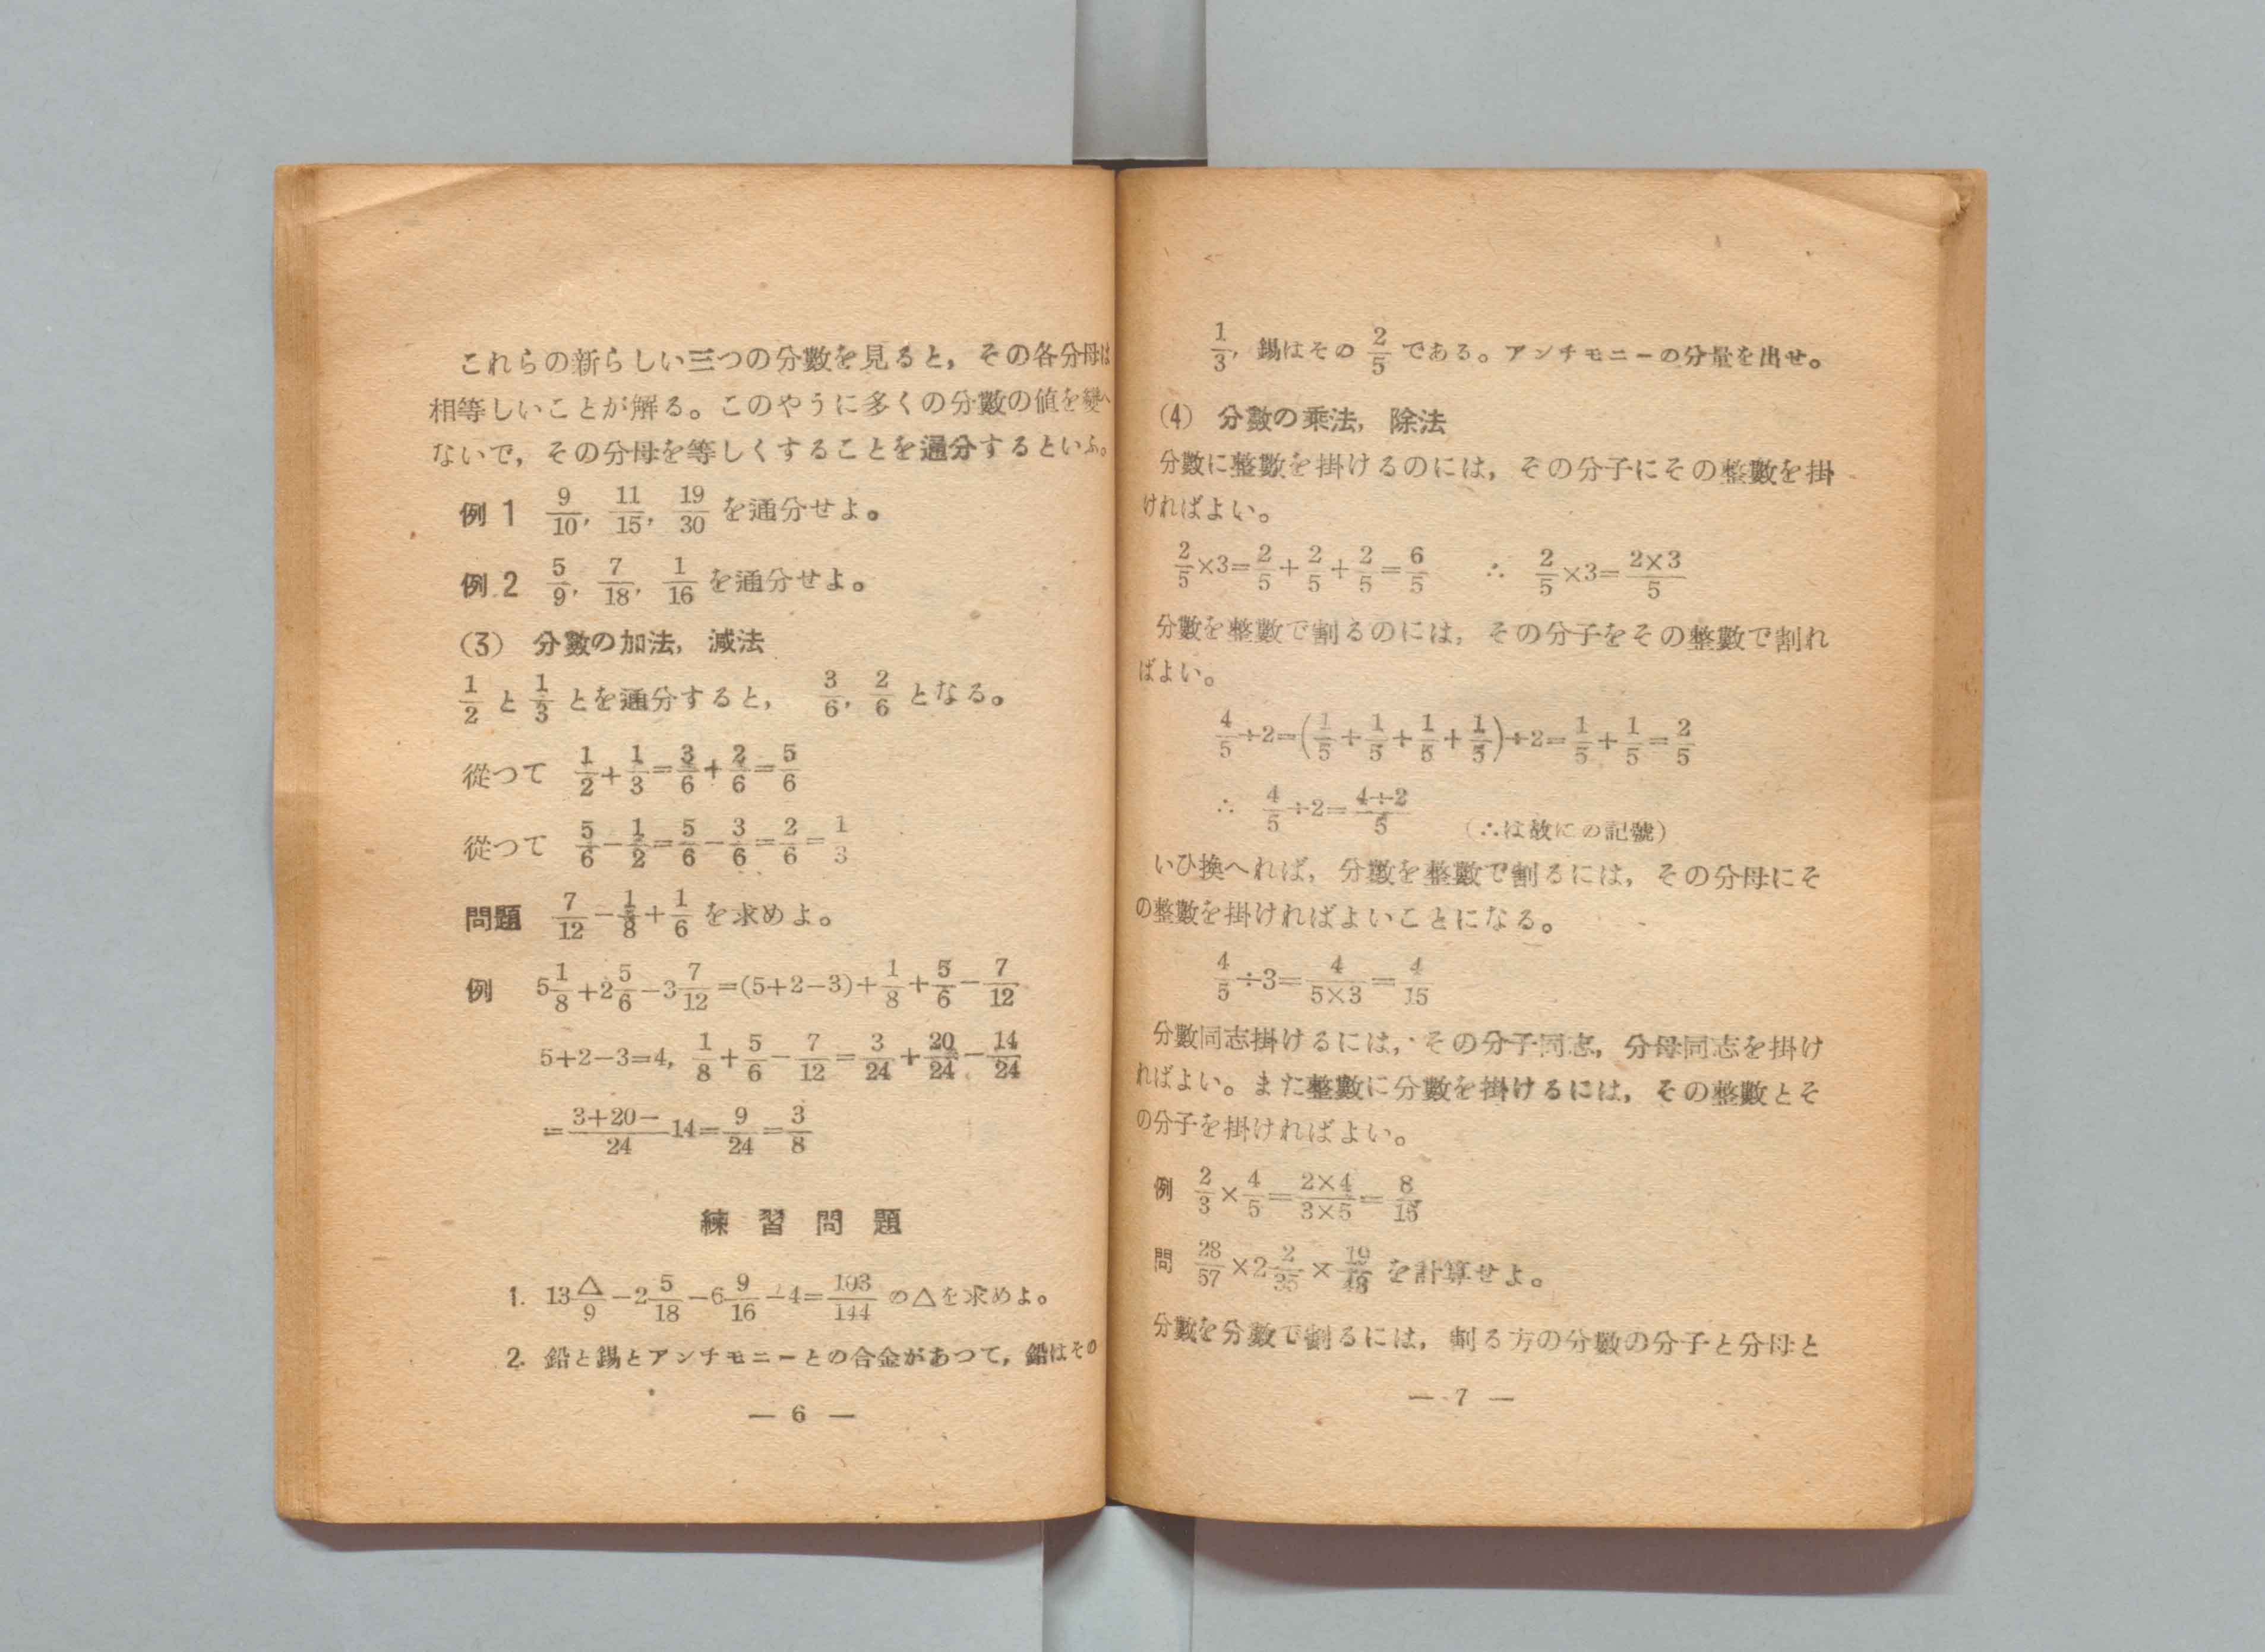 これらの新らしい三つの分數を見ると，その各分母は
相等しいことが解る。このやうに多くの分數の値を變へ
ないで，その分母を等しくすることを通分するといふ。
例 1 9/10, 11/15, 19/30 を通分せよ。
例 2 5/9, 7/18, 1/16 を通分せよ。
(3) 分數の加法，減法
1/2 と 1/3 とを通分すると， 3/6, 2/6 となる。
從つて 1/2+1/3=3/6+2/6=5/6
從つて 5/6−1/2=5/6−3/6=2/6=1/3
問題 7/12−1/8+1/6 を求めよ。
例 5 1/8+2 5/6−3 7/12=(5+2−3)+1/8+5/6−7/12
5+2−3=4, 1/8+5/6−7/12=3/24+20/24−14/24
=3+20−/24 14=9/24=3/8
練習問題
1. 13 △/9−2 5/18−6 9/16−4=103/144 の△を求めよ。
2. 鉛と錫とアンチモニーとの合金があつて，鉛はその
— 6 —
1/3, 錫はその 2/5 である。アンチモニーの分量を出せ。
(4) 分數の乘法，除法
分數に整數を掛けるのには，その分子にその整數を掛
ければよい。
2/5×3=2/5+2/5+2/5=6/5 ∴ 2/5×3=2×3/5
分數を整數で割るのには，その分子をその整數で割れ
ばよい。
4/5÷2=(1/5+1/5+1/5+1/5)÷2=1/5+1/5=2/5
∴ 4/5÷2=4÷2/5 (∴は故にの記號)
いひ換へれば，分數を整數で割るには，その分母にそ
の整數を掛ければよいことになる。
4/5÷3=4/5×3=4/15
分數同志掛けるには，その分子同志，分母同志を掛け
ればよい。また整數に分數を掛けるには，その整數とそ
の分子を掛ければよい。
例 2/3×4/5=2×4/3×5=8/15
問 28/57×2 2/35× を計算せよ。
分數を分數で割るには，割る方の分數の分子と分母と
— 7 —